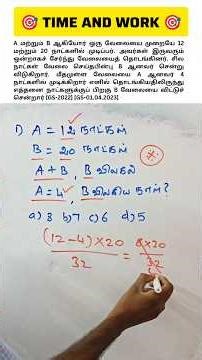 🎯 TIME AND WORK 🎯
A மற்றும் B ஆகியோர் ஒரு வேலையை முறையே 12
மற்றும் 20 நாட்களில் முடிப்பர். அவர்கள் இருவரும்
ஒன்றாகச் சேர்ந்து வேலையைத் தொடங்கினர். சில
நாட்கள் வேலை செய்தபின்பு B ஆனவர் சென்று
விடுகிறார். மீதமுள்ள வேலையை A ஆனவர் 4
நாட்களில் முடிக்கிறார் எனில் தொடங்கியதிலிருந்து
எத்தனை நாட்களுக்குப் பிறகு B வேலையை விட்டுச்
சென்றார்? (GS-2022) [GS-01.04.2023]
1) A = 12 நாட்கள்
B = 20 நாட்கள்
A + B, B விலகல்
A = 4, B விலகிய நாள்?
a) 8 b) 7 c) 6 d) 5
(12-4) × 20 / 32 = 8 × 20 / 32